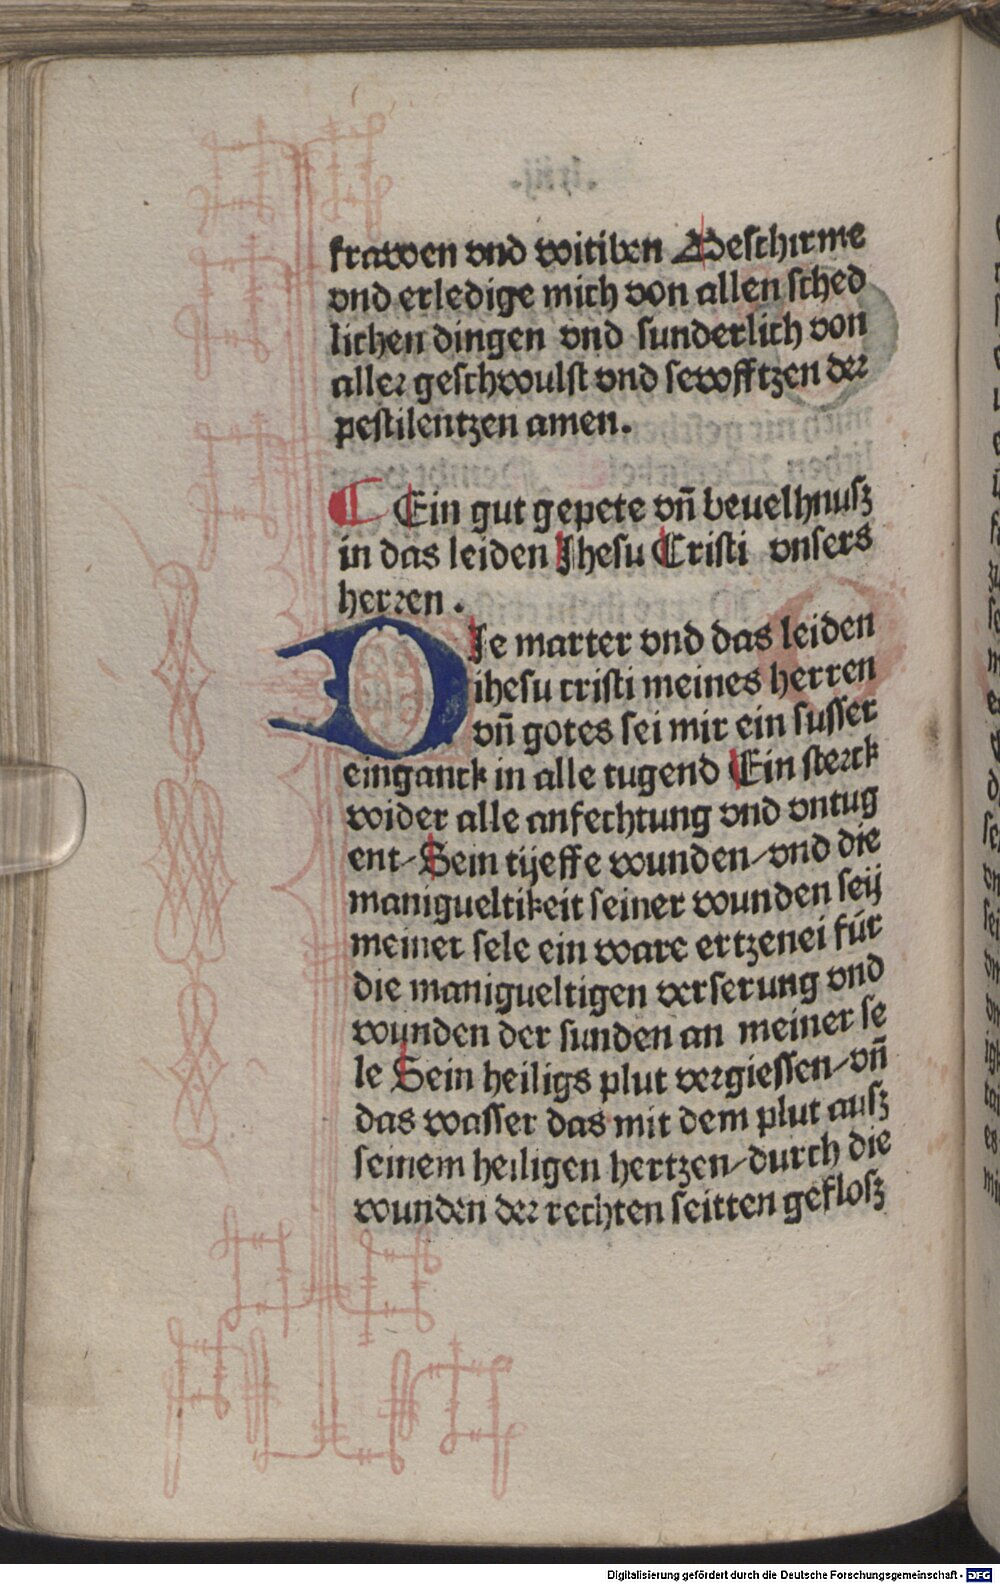 frawen vnd witiben Beschirme
vnd erledige mich von allen sched
lichen dingen vnd sunderlich von
aller geschwulst vnd sewfftzen der
pestilentzen amen.
Ein gut gepete vñ beuelhnusz
in das leiden Jhesu Cristi vnsers
herren.
DJe marter vnd das leiden
ihesu cristi meines herren
vñ gotes sei mir ein susser
einganck in alle tugend Ein sterck
wider alle anfechtung vnd vntug
ent/Sein tijeffe wunden/vnd die
manigueltikeit seiner wunden seij
meiner sele ein ware ertzenei fúr
die manigueltigen verserung vnd
wunden der sunden an meiner se
le Sein heiligs plut vergiessen/vñ
das wasser das mit dem plut ausz
seinem heiligen hertzen/durch die
wunden der rechten seitten geflosz
Digitalisierung gefördert durch die Deutsche Forschungsgemeinschaft - DFG